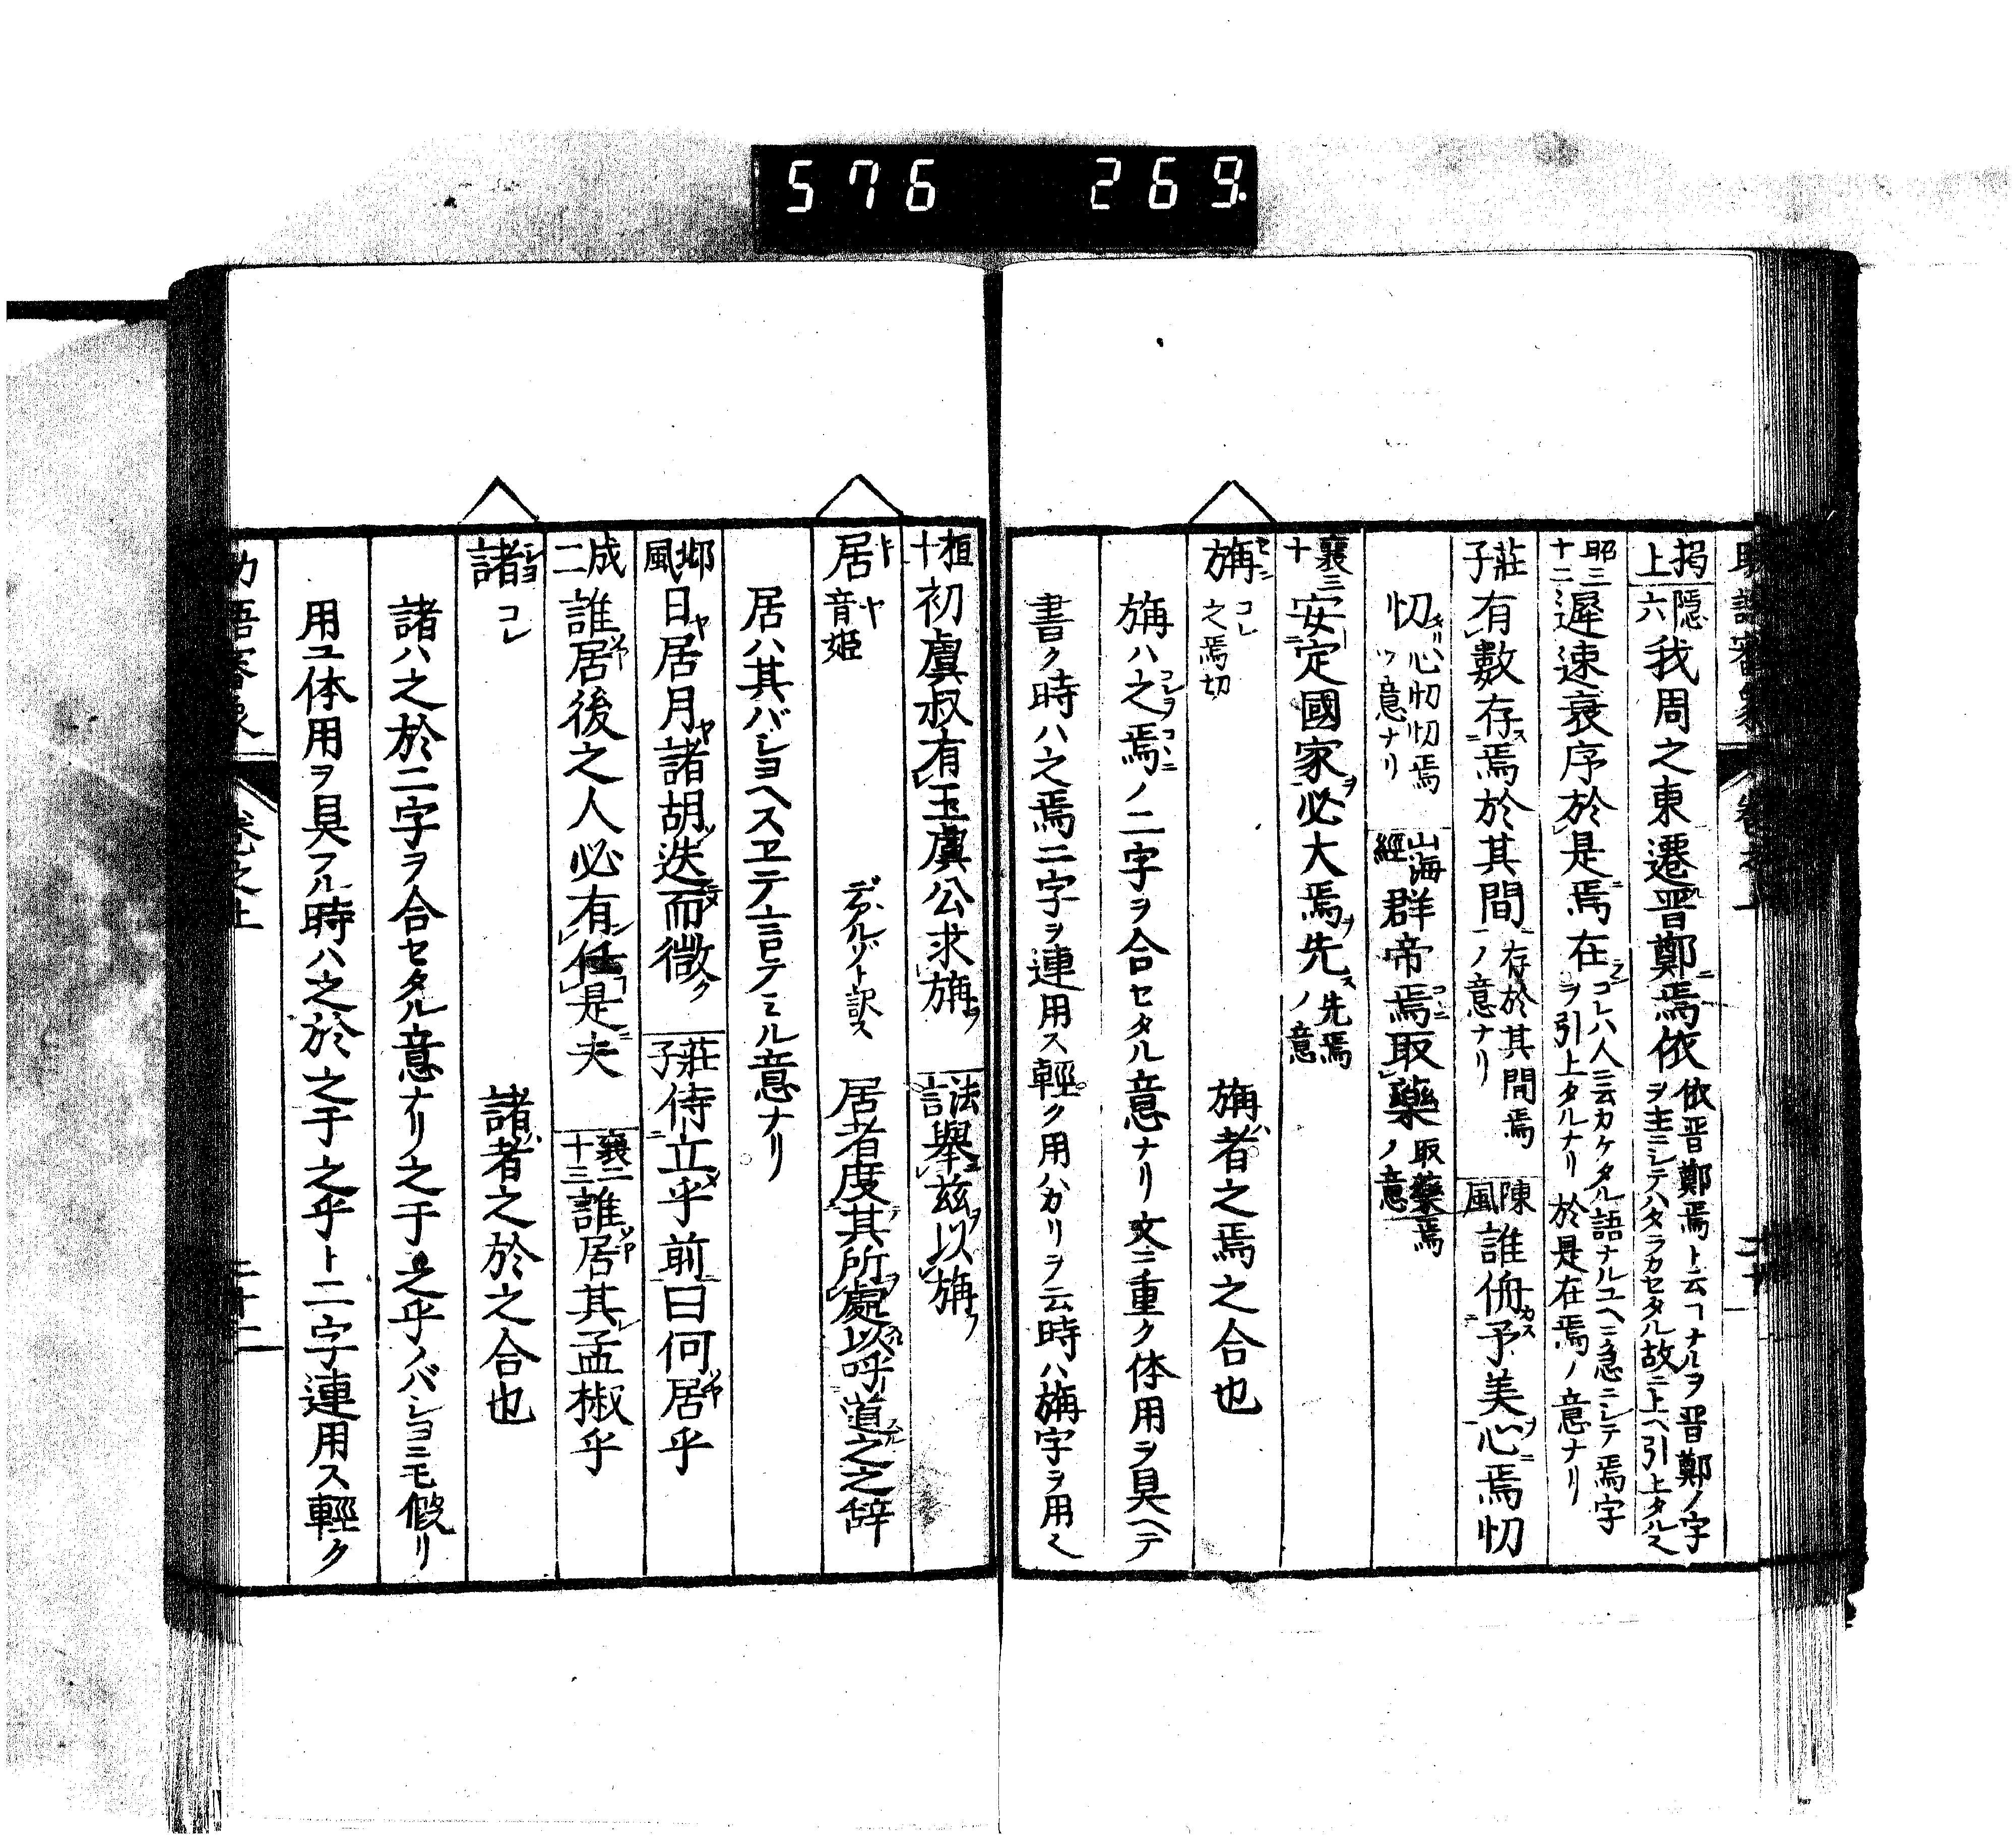 576 269
掲上 隱六 我周之東遷晋鄭焉依 依晋鄭焉ト云ヿナルヲ晋鄭ノ字ヲ主ニシテハタラカセタル故ニ上ヘ引上タル也
昭三十二 遲速衰序於是焉在 コレハ人ニ云カケタル語ナルユヘニ急ニシテ焉字ヲ引上タルナリ 於是在焉ノ意ナリ
莊子 有數存焉於其間 存於其間焉ノ意ナリ 陳風 誰侜予美心焉忉
忉 心忉忉焉ノ意ナリ 山海經 群帝焉取藥 取藥焉ノ意
襄三十 安定國家必大焉先 先焉ノ意
旃 セン コレ 之焉切 旃者之焉之合也
旃ハ之焉ノ二字ヲ合セタル意ナリ文ニ重ク体用ヲ具ヘテ
書ク時ハ之焉二字ヲ連用ス輕ク用ハカリヲ云時ハ旃字ヲ用ヘ
桓十 初虞叔有玉虞公求旃 法言 舉茲以旃
居 ヤ 音姬 デアルゾト訳ス 居者度其所處以呼道之之辞
居ハ其バショヘスヱテ言テミル意ナリ
邶風 日居月諸胡迭而微 莊子 侍立乎前曰何居乎
成二 誰居後之人必有任是夫 襄二十三 誰居其孟椒乎
諸 ショ コレ 諸者之於之合也
諸ハ之於二字ヲ合セタル意ナリ之于之乎ノバショニモ假リ
用ユ体用ヲ具フル時ハ之於之于之乎ト二字連用ス輕ク
卷之上